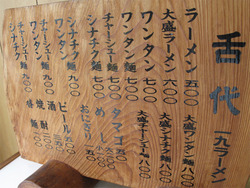 舌代
一九ラーメン
ラーメン 五〇〇
大盛ラーメン 六〇〇
ワンタン 五〇〇
ワンタン麺 七〇〇
チャーシュー麺 七〇〇
シナチク麺 七〇〇
シナチク
ワンタン
チャーシュー
ワンタン
チャーシュー
シナチク
大盛ワンタン麺 八〇〇
大盛シナチク麺 八〇〇
大盛チャーシュー麺 八〇〇
タマゴ 五〇
めし
おにぎり
ビール
酒
焼酎